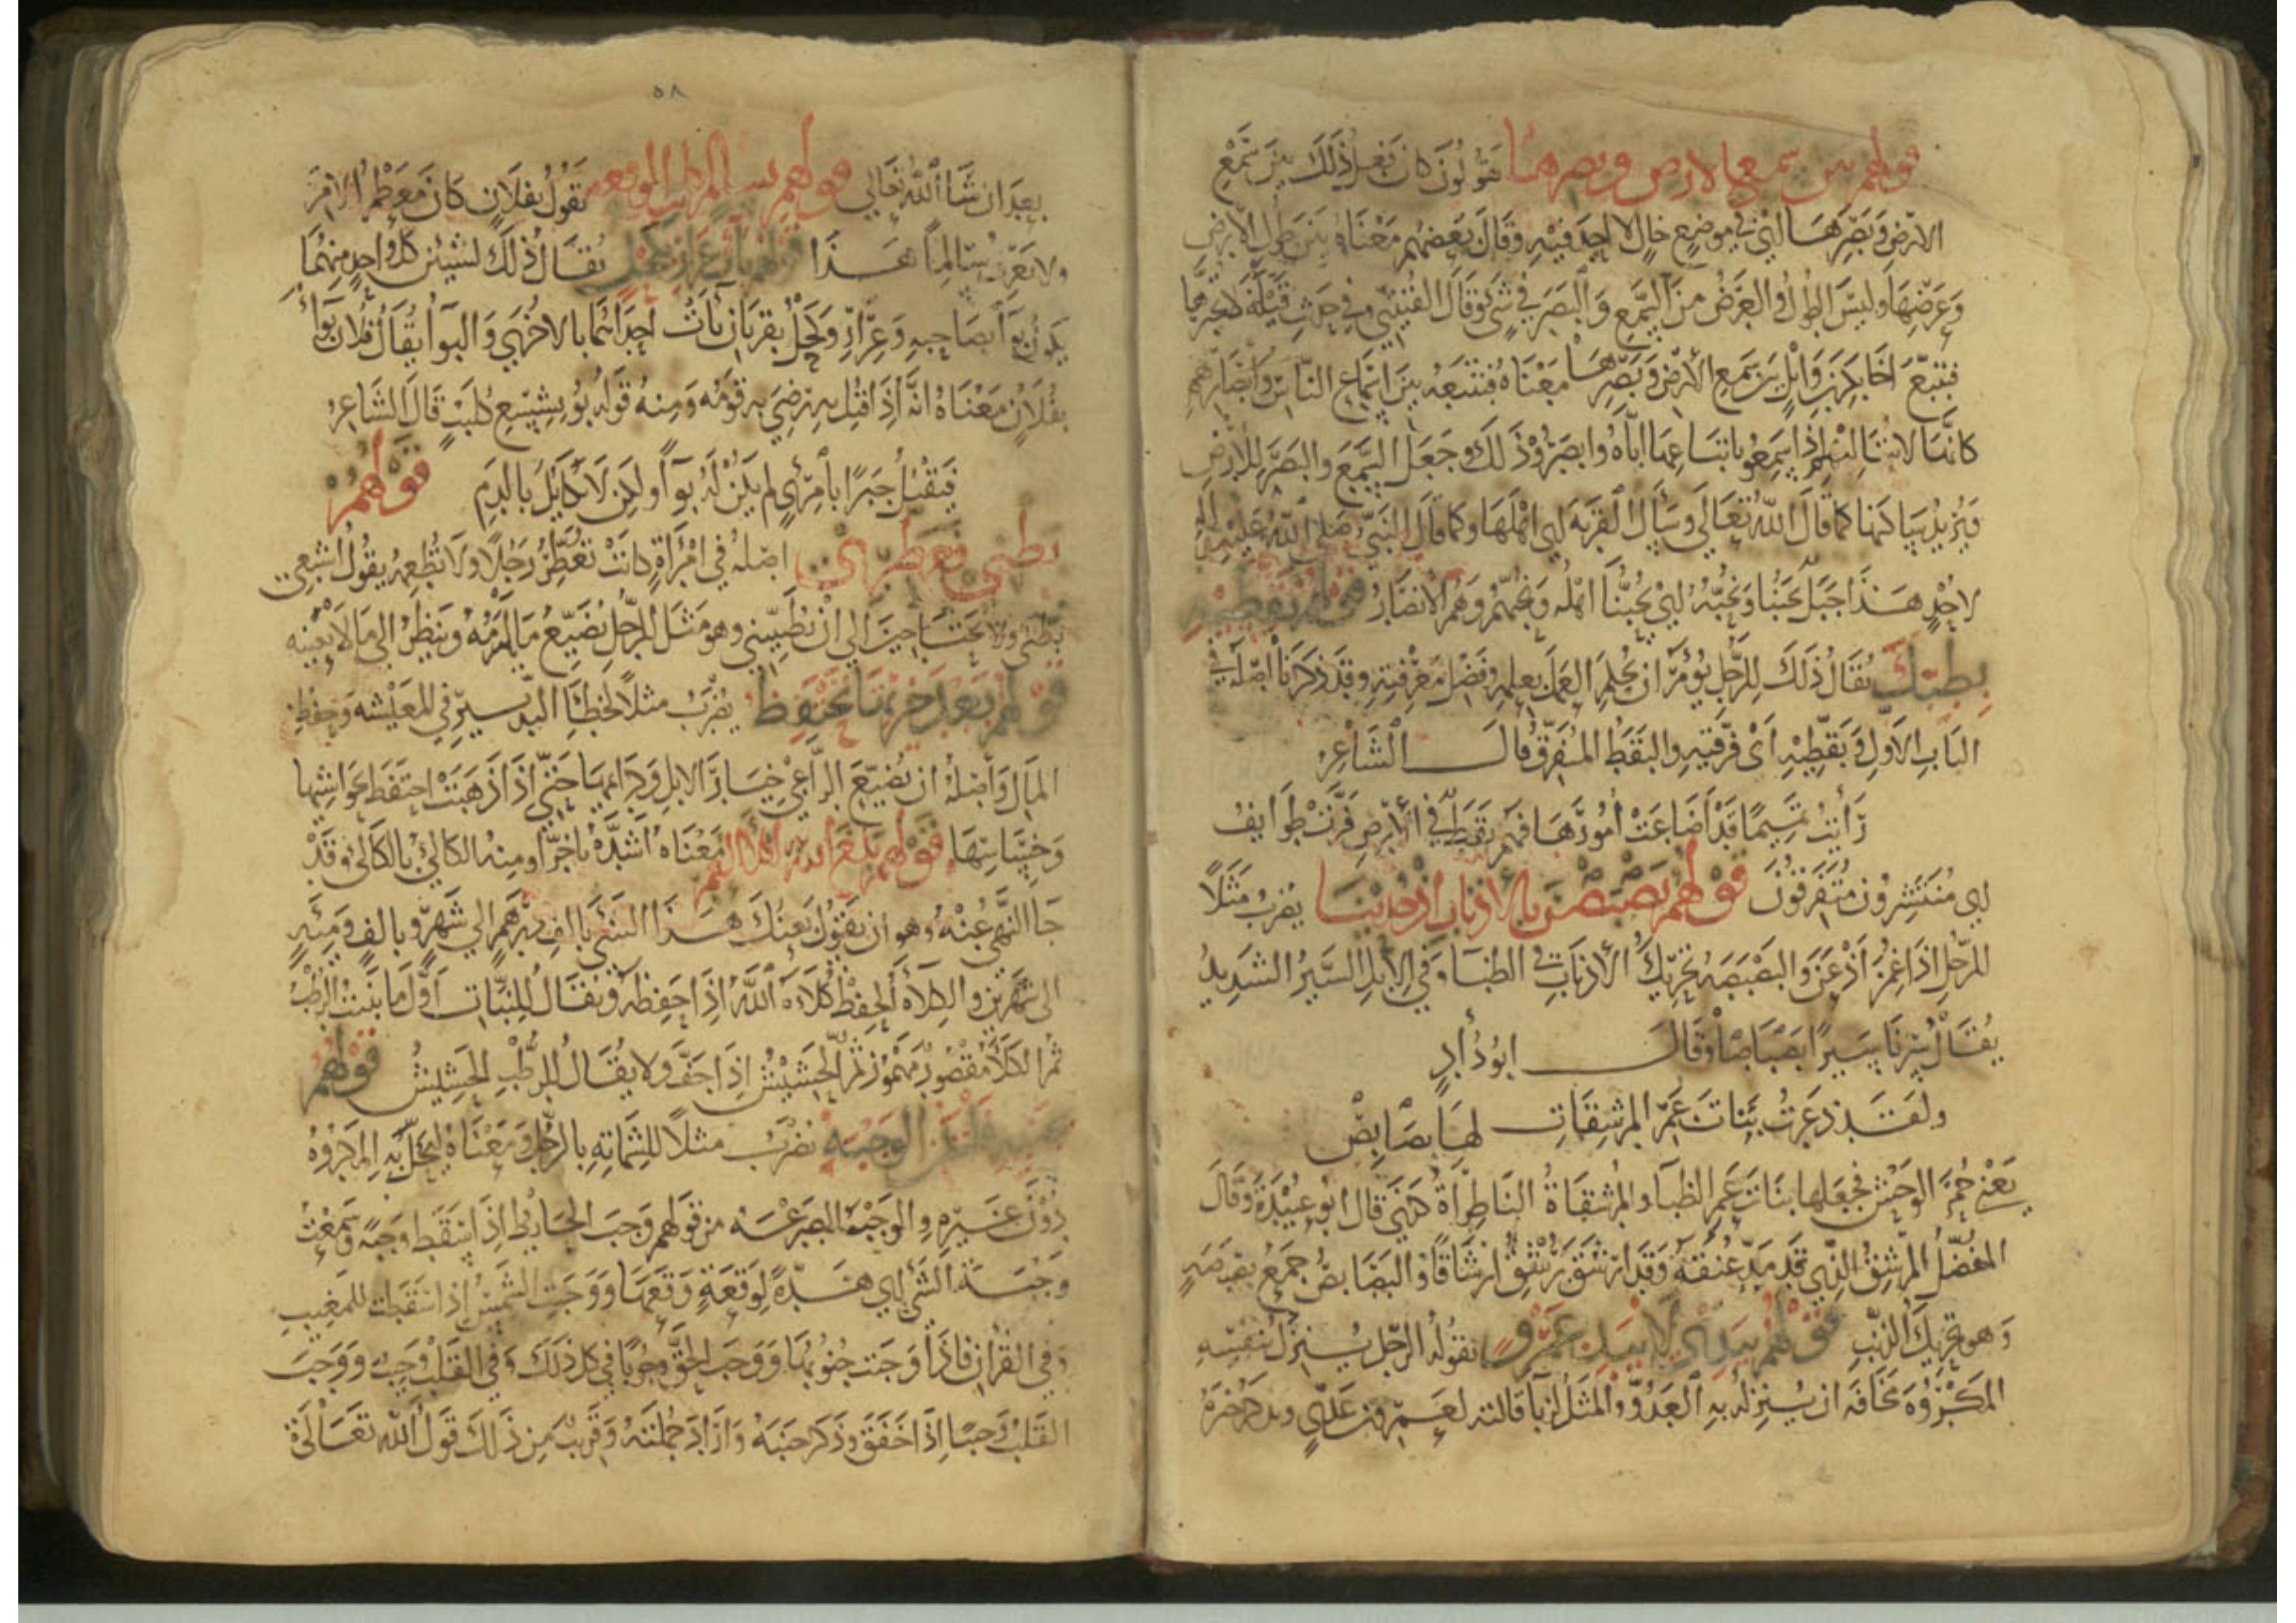 قولهم بين سمع الارض وبصرها يقولون كان فعل ذلك بين سمع
الارض وبصرها اي في موضع خال لا احد فيه وقال بعضهم معناه بين طول الارض
وعرضها وليس الطول والعرض من السمع والبصر في شي وقال القتيبي في حديث قيلة لا تخبرها
فتتبع اخا بكر بن وايل بين سمع الارض وبصرها معناه فتتبعه بين اسماع الناس وابصارهم
كانها لاتباليهم اذا سمعوا باتباعها اياه وابصروا ذلك وجعل السمع والبصر للارض
يريد ساكنها كما قال الله تعالى وسئل القرية اي اهلها وكما قال النبي صلى الله عليه
لاحد هذا جبل يحبنا ونحبه اي يحبنا اهله ونحبهم وهم الانصار قولهم بقطيه
بطبك يقال ذلك للرجل يؤمر ان يحكم العمل بعلمه وفضل معرفته وقد ذكرنا اصله في
الباب الاول وبقطيه اي فرقيه والبقط المتفرق قال الشاعر
رأيت تميما قد اضاعت امورها فهم بقط في الارض فرث طوايف
اي منتشرون متفرقون قولهم بصبصن بالاذناب اذ حدينا يضرب مثلا
للرجل اذا غمز اذعن والبصبصة تحريك الاذناب في الظبا وفي الابل السير الشديد
يقال سرنا سيرا بصباصا وقال ابو دؤاد
ولقد ذعرت بنات عم المرشقات لها بصابص
يعني حمر الوحش فجعلها بنات عم الظبا والمرشقاة الناظراة كهي قال ابو عبيدة وقال
المفضل المرشق الذي قد مد عنقه وقد ارشق يرشق ارشاقا والبصابص جمع بصبصة
وهو تحريك الذنب قولهم بيدي لا بيد عمرو يقوله الرجل ينزل بنفسه
المكروه مخافة ان ينزله به العدو والمثل للزبا قالته لعمرو بن عدي وسنذكر خبره
٥٨
بعد ان شا الله تعالى قولهم تقول بفلان كان معظم الامر
ولا تعرف سالما هذا قولهم باءت عرار بكحل يقال ذلك لشيئين كل واحد منهما
يكون بوا بصاحبه وعرار وكحل بقرتان باءت احداهما بالاخرى والبوا يقال فلان بوا
بفلان معناه انه اذا قتل به رضي به قومه ومنه قوله بؤ بشسع كليب قال الشاعر
فيقتل جبرا بامرئ لم يكن له بوا ولكن لا تكايل بالدم قولهم
بطني فعطري اصله في امراة كانت تعطر رجلا ولا تطعمه يقول اشبعي
بطني ولا تحتاجين الى ان تطيبيني وهو مثل للرجل يضيع ما يلزمه وينظر الى ما لا يعنيه
قولهم بعد خيرتها تحتفظ يضرب مثلا لخطا التدبير في المعيشة وحفظ
المال واصله ان يضيع الراعي خيار الابل وكرايمها حتى اذا ذهبت احتفظ بحواشيها
وخساستها قولهم بلغ الله بك اكلا العمر معناه اشده تاخرا ومنه الكالئ بالكالئ وقد
جا النهي عنه وهو ان يقول بعتك هذا الشي بالف درهم الى شهر وبالف ومئة
الى شهرين والكلاة الحفظ كلاه الله اذا حفظه ويقال للنبات اول ما ينبت الرطب
ثم الكلا مقصور مهموز ثم الحشيش اذا جف ولا يقال للرطب الحشيش قولهم
بجنبه فلتكن الوجبة يضرب مثلا للشماتة بالرجل ومعناه ليحل به المكروه
دون غيره والوجبة الصرعة من قولهم وجب الحايط اذا سقط وجبة وسمعت
وجبة الشي اي هدة لوقعة وقعها ووجبت الشمس اذا سقطت للمغيب
وفي القران فاذا وجبت جنوبها ووجب الحق وجوبا في كل ذلك وفي القلب وجب ووجب
القلب وجبا اذا خفق وذكر جنبه واراد جملته وقريب من ذلك قول الله تعالى